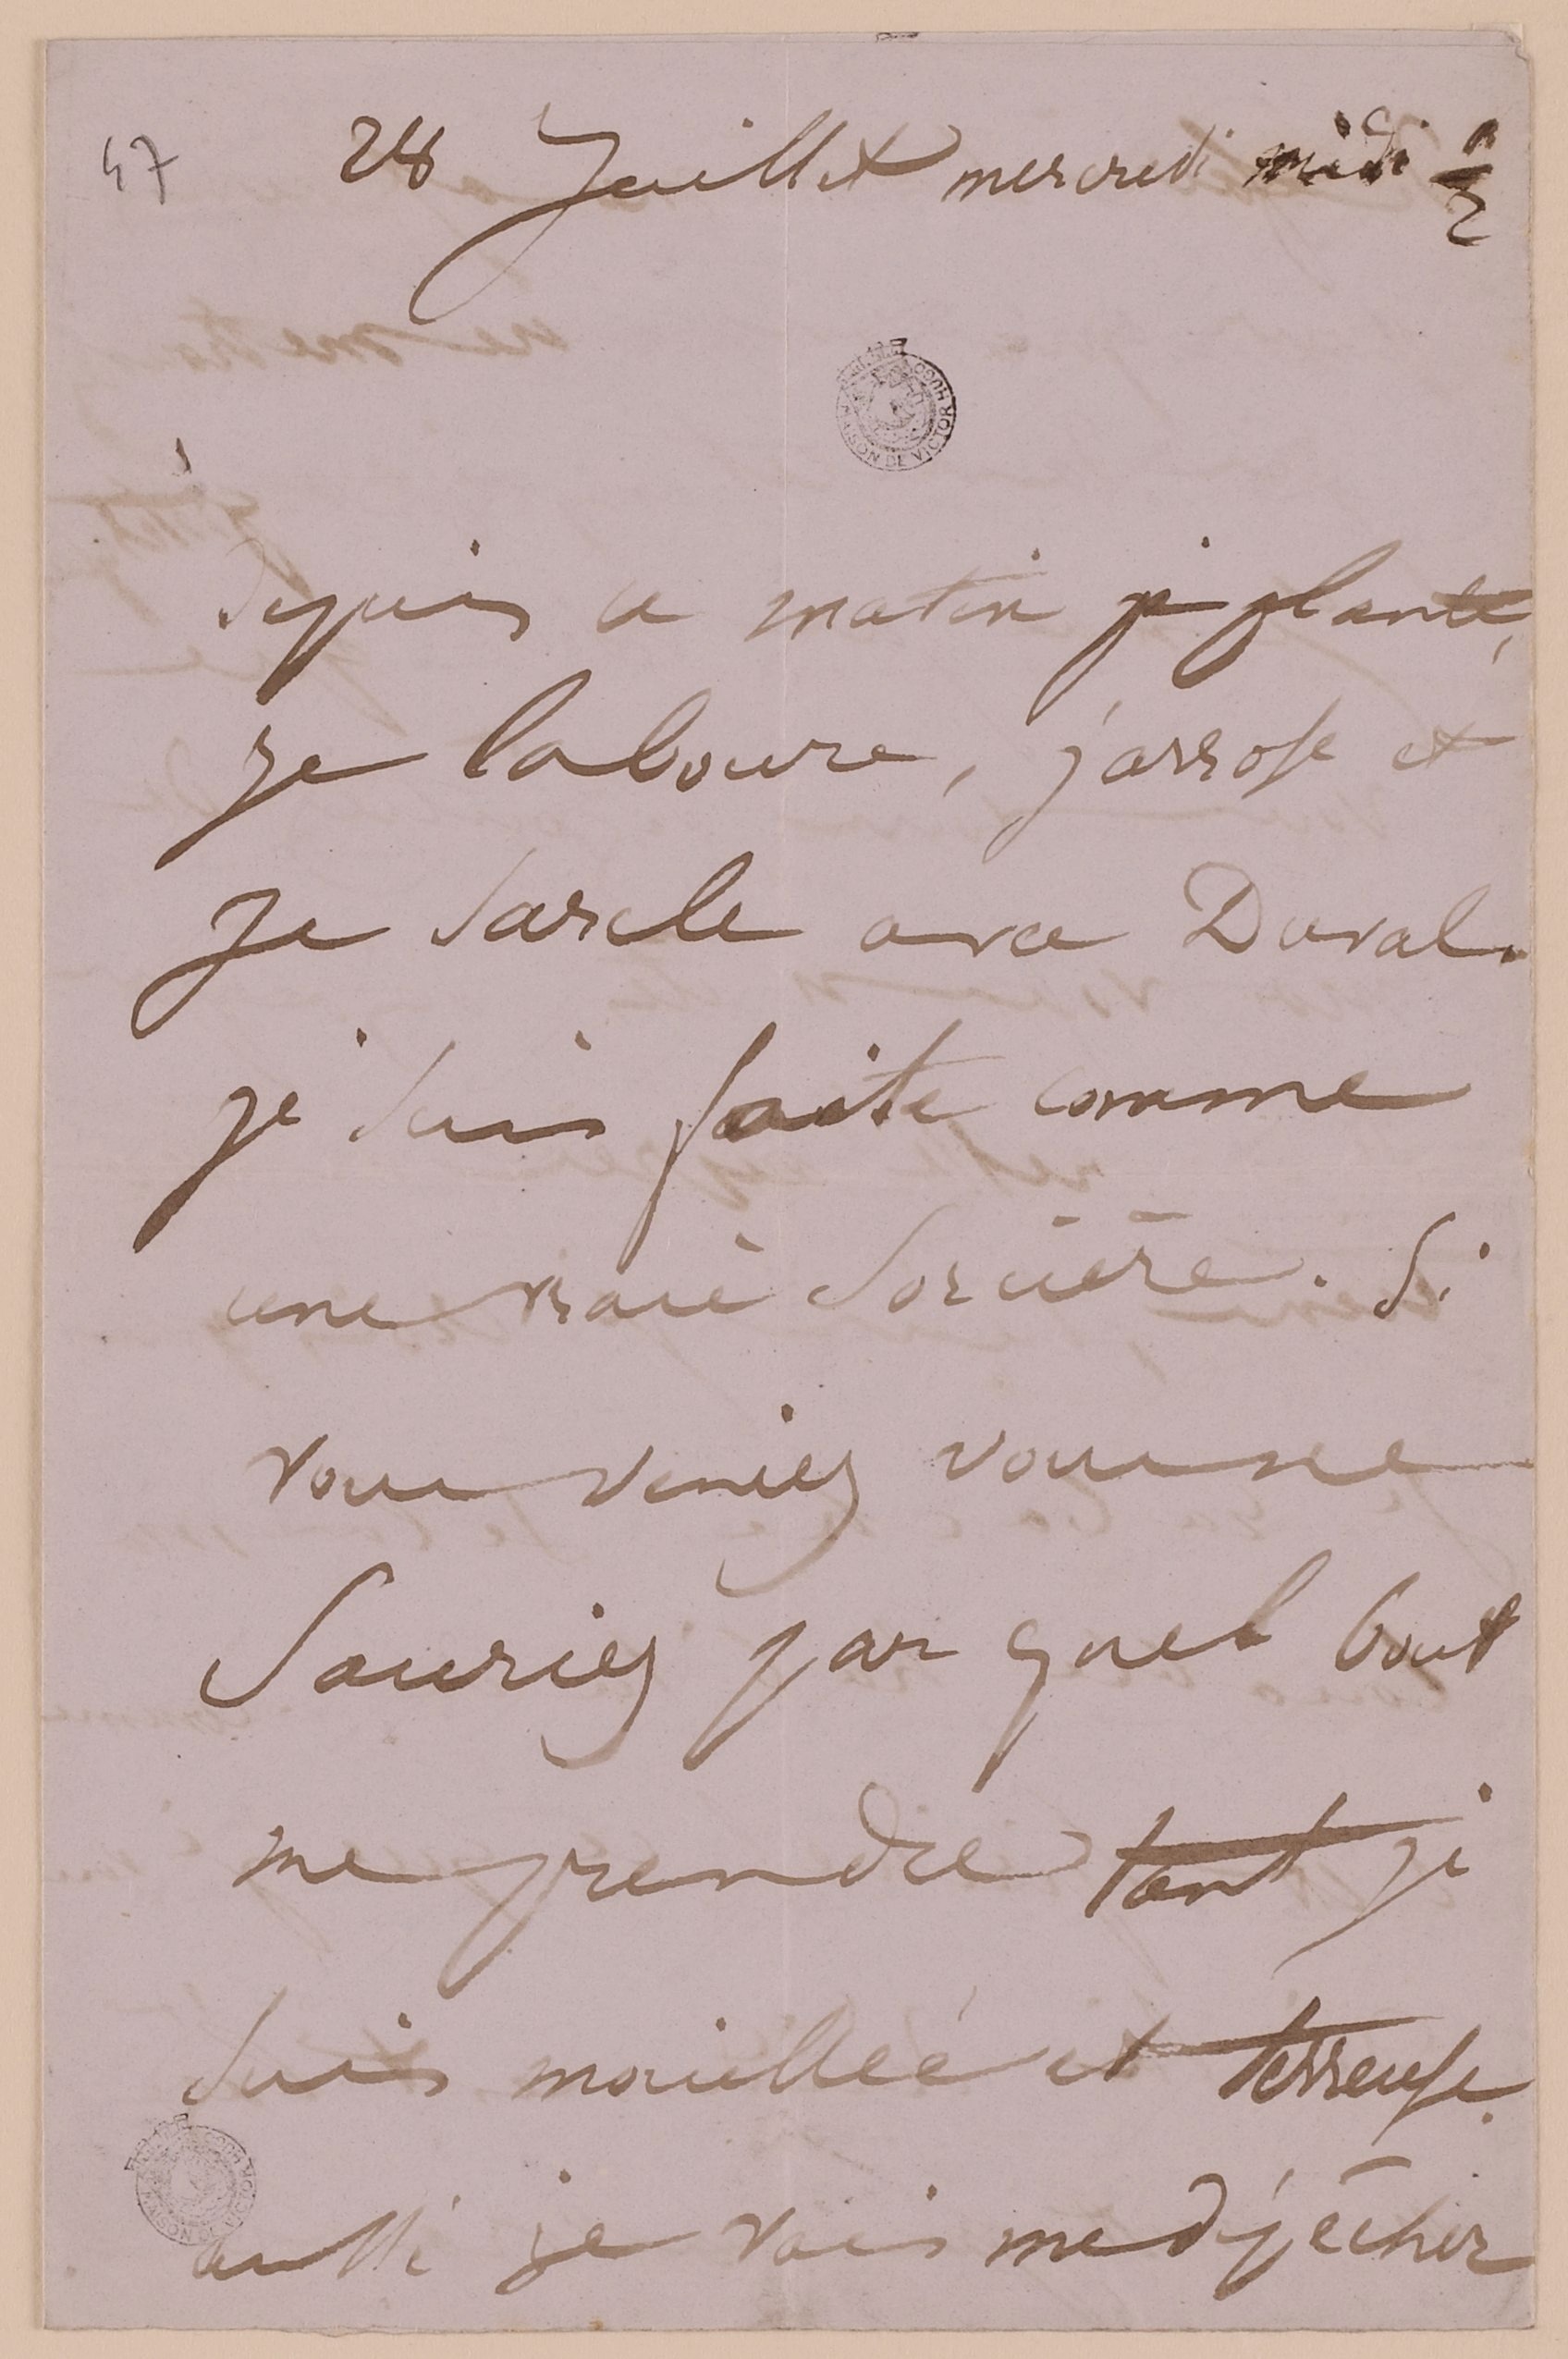 47 28 Juillet mercredi midi ½
MAISON DE VICTOR HUGO
Depuis ce matin je plante,
je laboure, j'arrose et
je sarcle avec Duval.
je suis faite comme
une vraie sorcière. Si
vous veniez vous ne
sauriez par quel bout
me prendre tant je
suis mouillée et terreuse.
aussi je vais me dépêcher